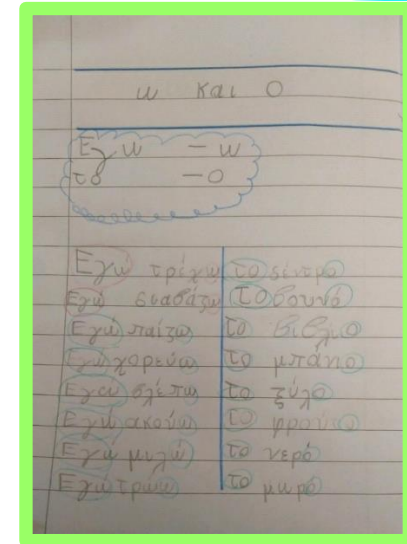 ω και Ο
Εγω -ω
το -ο
Εγώ τρέχω το δέντρο
Εγώ διαβάζω το βουνό
Εγώ παίζω το βιβλίο
Εγώ χορεύω το μπάνιο
Εγώ βλέπω το ξύλο
Εγώ ακούω το
Εγώ μιλώ το νερό
Εγώ τρώω το μωρό